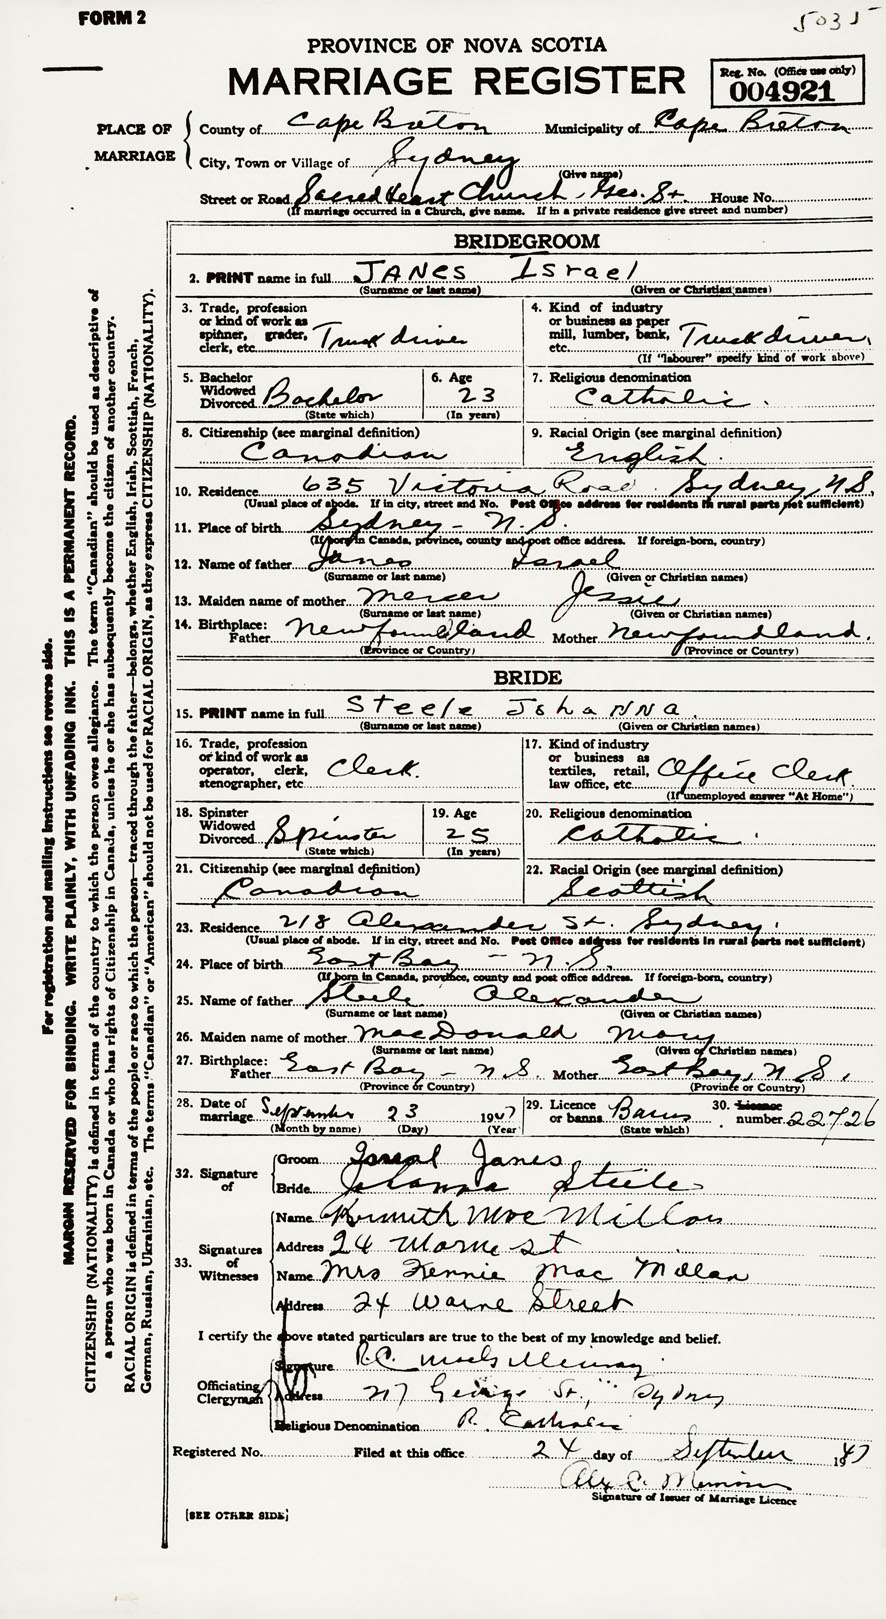 FORM 2
5035
PROVINCE OF NOVA SCOTIA
MARRIAGE REGISTER
Reg. No. (Office use only)
004921
PLACE OF MARRIAGE
County of Cape Breton Municipality of Cape Breton
City, Town or Village of Sydney
(Give name)
Street or Road Sacred Heart Church, Geo. St. House No.
(If marriage occurred in a Church, give name. If in a private residence give street and number)
BRIDEGROOM
2. PRINT name in full JANES Israel
(Surname or last name) (Given or Christian names)
3. Trade, profession or kind of work as spinner, grader, clerk, etc. Truck driver
4. Kind of industry or business as paper mill, lumber, bank, etc. Truck driver
(If "labourer" specify kind of work above)
5. Bachelor Widowed Divorced Bachelor
(State which)
6. Age 23
(In years)
7. Religious denomination
Catholic.
8. Citizenship (see marginal definition)
Canadian
9. Racial Origin (see marginal definition)
English.
10. Residence 635 Victoria Road. Sydney, N.S.
(Usual place of abode. If in city, street and No. Post Office address for residents in rural parts not sufficient)
11. Place of birth Sydney - N.S.
(If born in Canada, province, county and post office address. If foreign-born, country)
12. Name of father Janes Israel
(Surname or last name) (Given or Christian names)
13. Maiden name of mother Mercer Jessie
(Surname or last name) (Given or Christian names)
14. Birthplace: Father Newfoundland Mother Newfoundland.
(Province or Country) (Province or Country)
BRIDE
15. PRINT name in full Steele JohaNNa
(Surname or last name) (Given or Christian names)
16. Trade, profession or kind of work as operator, clerk, stenographer, etc. Clerk.
17. Kind of industry or business as textiles, retail, law office, etc. Office Clerk
(If unemployed answer "At Home")
18. Spinster Widowed Divorced Spinster
(State which)
19. Age 25
(In years)
20. Religious denomination
Catholic.
21. Citizenship (see marginal definition)
Canadian
22. Racial Origin (see marginal definition)
Scottish
23. Residence 218 Alexander St. Sydney.
(Usual place of abode. If in city, street and No. Post Office address for residents in rural parts not sufficient)
24. Place of birth East Bay - N.S.
(If born in Canada, province, county and post office address. If foreign-born, country)
25. Name of father Steele Alexander
(Surname or last name) (Given or Christian names)
26. Maiden name of mother MacDonald Mary
(Surname or last name) (Given or Christian names)
27. Birthplace: Father East Bay - N.S. Mother East Bay, N.S.
(Province or Country) (Province or Country)
28. Date of marriage September 23 1947
(Month by name) (Day) (Year)
29. Licence or banns Banns
(State which)
30. Licence number 22726
32. Signature of
Groom Janes
Bride Johanna Steele
33. Signatures of Witnesses
Name Kenneth MacMillan
Address 24 St
Name Mrs Kennie Mac Millan
Address 24 Warne Street
I certify the above stated particulars are true to the best of my knowledge and belief.
Officiating Clergyman
Signature
Address 217 George St., Sydney
Religious Denomination R. Catholic
Registered No. Filed at this office 24 day of September 1947
Alex C.
Signature of Issuer of Marriage Licence
[SEE OTHER SIDE]
For registration and mailing instructions see reverse side.
MARGIN RESERVED FOR BINDING. WRITE PLAINLY, WITH UNFADING INK. THIS IS A PERMANENT RECORD.
CITIZENSHIP (NATIONALITY) is defined in terms of the country to which the person owes allegiance. The term "Canadian" should be used as descriptive of
a person who was born in Canada or who has rights of Citizenship in Canada, unless he or she has subsequently become the citizen of another country.
RACIAL ORIGIN is defined in terms of the people or race to which the person—traced through the father—belongs, whether English, Irish, Scottish, French,
German, Russian, Ukrainian, etc. The terms "Canadian" or "American" should not be used for RACIAL ORIGIN, as they express CITIZENSHIP (NATIONALITY).